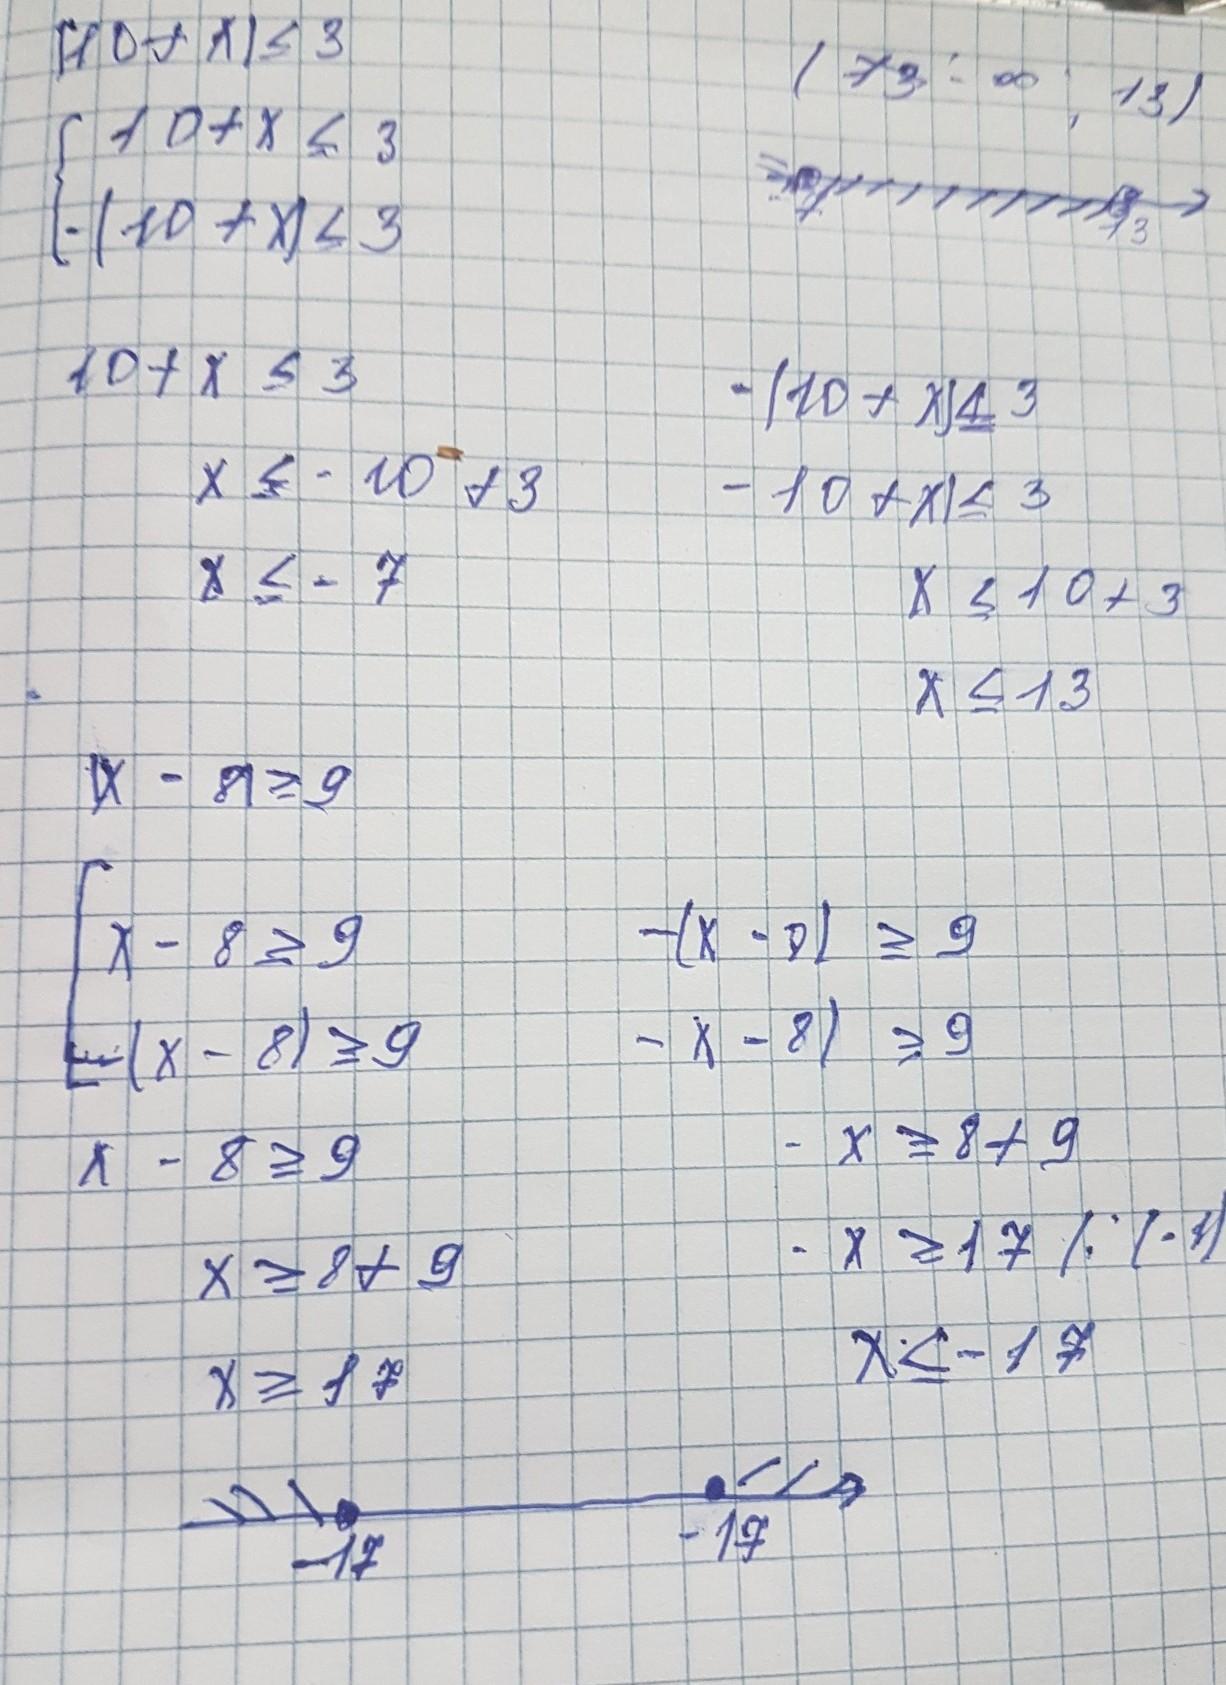 |10+x|≤3
10+x≤3
-(10+x)≤3
13)
13
10+x≤3
x≤-10+3
x≤-7
-(10+x)≤3
-10+x)≤3
x≤10+3
x≤13
|x-8|≥9
x-8≥9
-(x-8)≥9
x-8≥9
x≥8+9
x≥17
-(x-8)≥9
-x-8)≥9
-x≥8+9
-x≥17/:(-1)
x≤-17
-17
-17